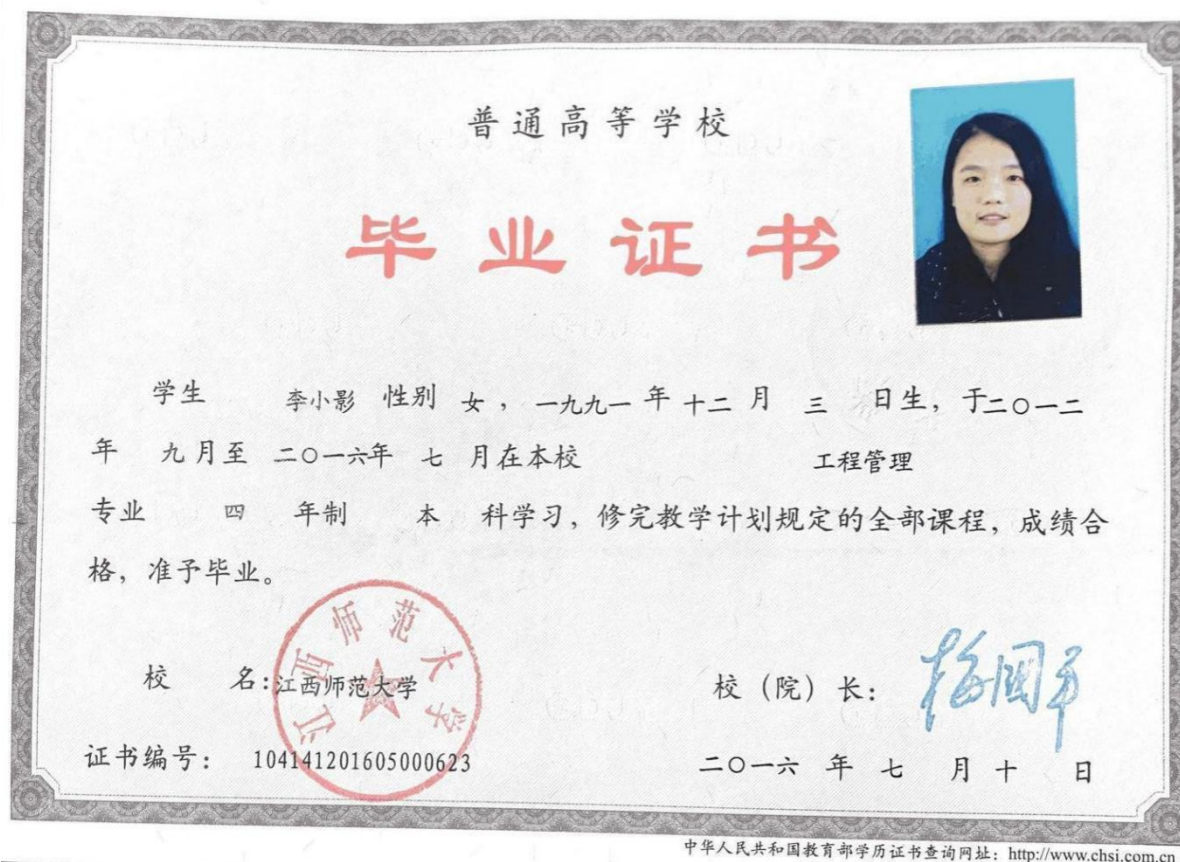 普通高等学校
毕业证书
学生 李小影 性别 女，一九九一 年 十二 月 三 日生，于二〇一二
年 九月至 二〇一六年 七 月在本校 工程管理
专业 四 年制 本 科学习，修完教学计划规定的全部课程，成绩合
格，准予毕业。
江西师范大学
校 名：江西师范大学 校（院）长：梅国平
证书编号： 104141201605000623 二〇一六 年 七 月 十 日
中华人民共和国教育部学历证书查询网址：http://www.chsi.com.cn